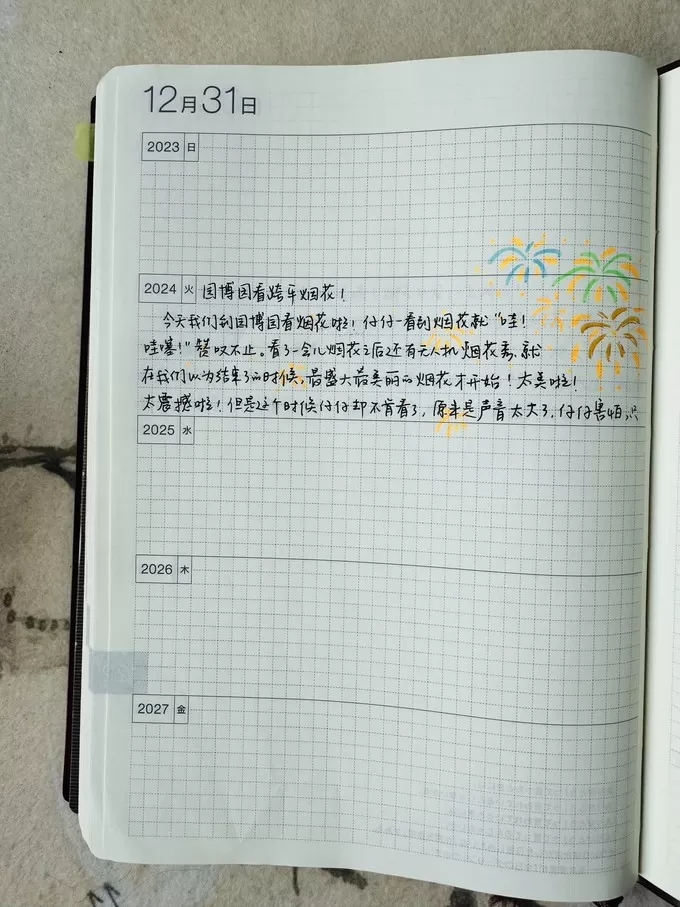 12月31日
2023 日
2024 火 国博园看跨年烟花！
今天我们到国博园看烟花啦！仔仔一看到烟花就“哇！
哇塞！”赞叹不止。看了一会儿烟花之后还有无人机烟花秀，就
在我们以为结束了的时候，最盛大最美丽的烟花才开始！太美啦！
太震撼啦！但是这个时候仔仔却不肯看了，原来是声音太大了，仔仔害怕，只
2025 水
2026 木
2027 金